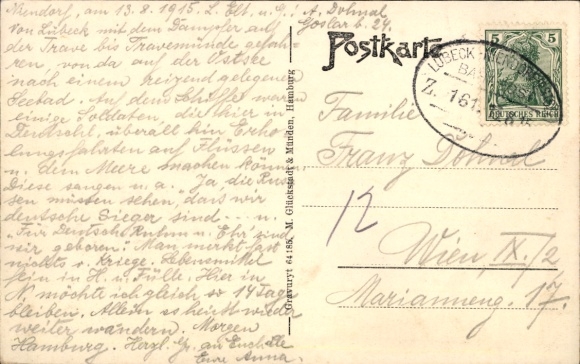 Niendorf, am 13.8.1915. L. Elt. u. G.! A. Dohnal
Goslar b. 24.
Von Lübeck mit dem Dampfer auf
der Trave bis Travemünde gefah-
ren, von da auf der Ostsee
nach einem reizend gelegenen
Seebad. Auf dem Schiffe waren
einige Soldaten, die hier in
Deutschl. überall hin Erho-
lungsfahrten auf Flüssen
u. dem Meere machen können.
Diese sangen u. a. "Ja, die Rus-
sen müssen sehen, dass wir
deutsche Sieger sind" - u.
"Für Deutschl. Ruhm u. Ehr' sind
wir geboren." Man merkt fast
nichts v. Kriege. Lebensmittel
sein in H. u. Fülle. Hier in
N. möchte ich gleich so 14 Tage
bleiben. Allein es heisst wieder
weiter wandern. Morgen
Hamburg. Herzl. Gr. an Euch alle
Eure Anna.
Gravuryt 64185. M. Glückstadt & Münden, Hamburg
Postkarte
5 5
DEUTSCHES REICH
LÜBECK-NIENDORF
Z. 161
Familie
Franz Dohnal
12
Wien, IX./2
Marianneng. 17.